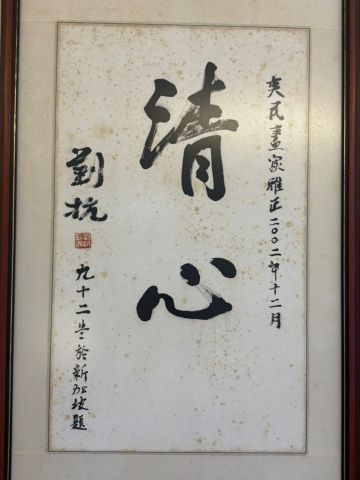 奕民畫家雅正二〇〇二年十二月
清心
劉抗
九十二歲於新加坡題